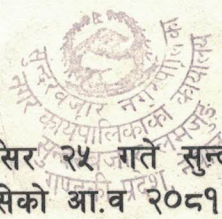 सुन्दरबजार नगरपालिका
नगर कार्यपालिकाको कार्यालय
गण्डकी प्रदेश
सिर २५ गते सुन्द
सिको आ.व २०८१